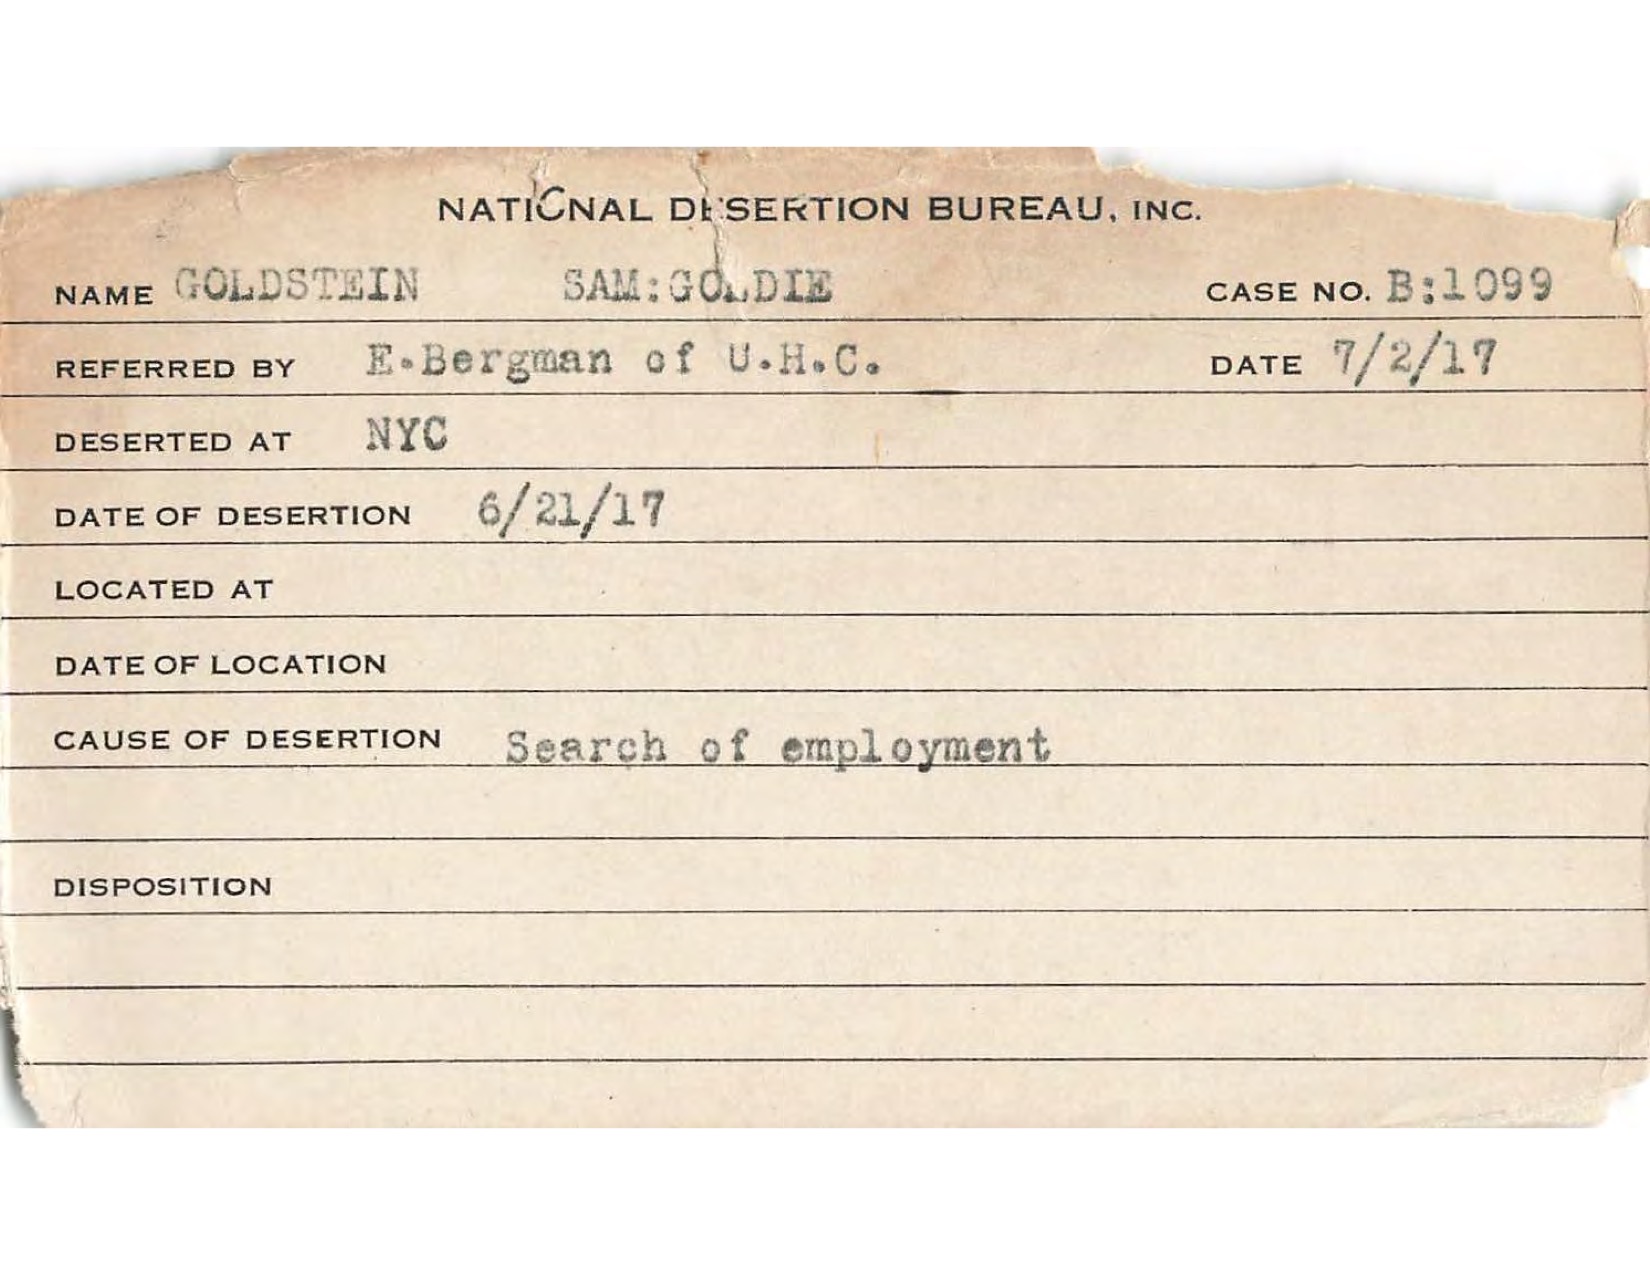 NATIONAL DESERTION BUREAU, INC.
NAME GOLDSTEIN SAM:GOLDIE CASE NO. B:1099
REFERRED BY E.Bergman of U.H.C. DATE 7/2/17
DESERTED AT NYC
DATE OF DESERTION 6/21/17
LOCATED AT
DATE OF LOCATION
CAUSE OF DESERTION Search of employment
DISPOSITION